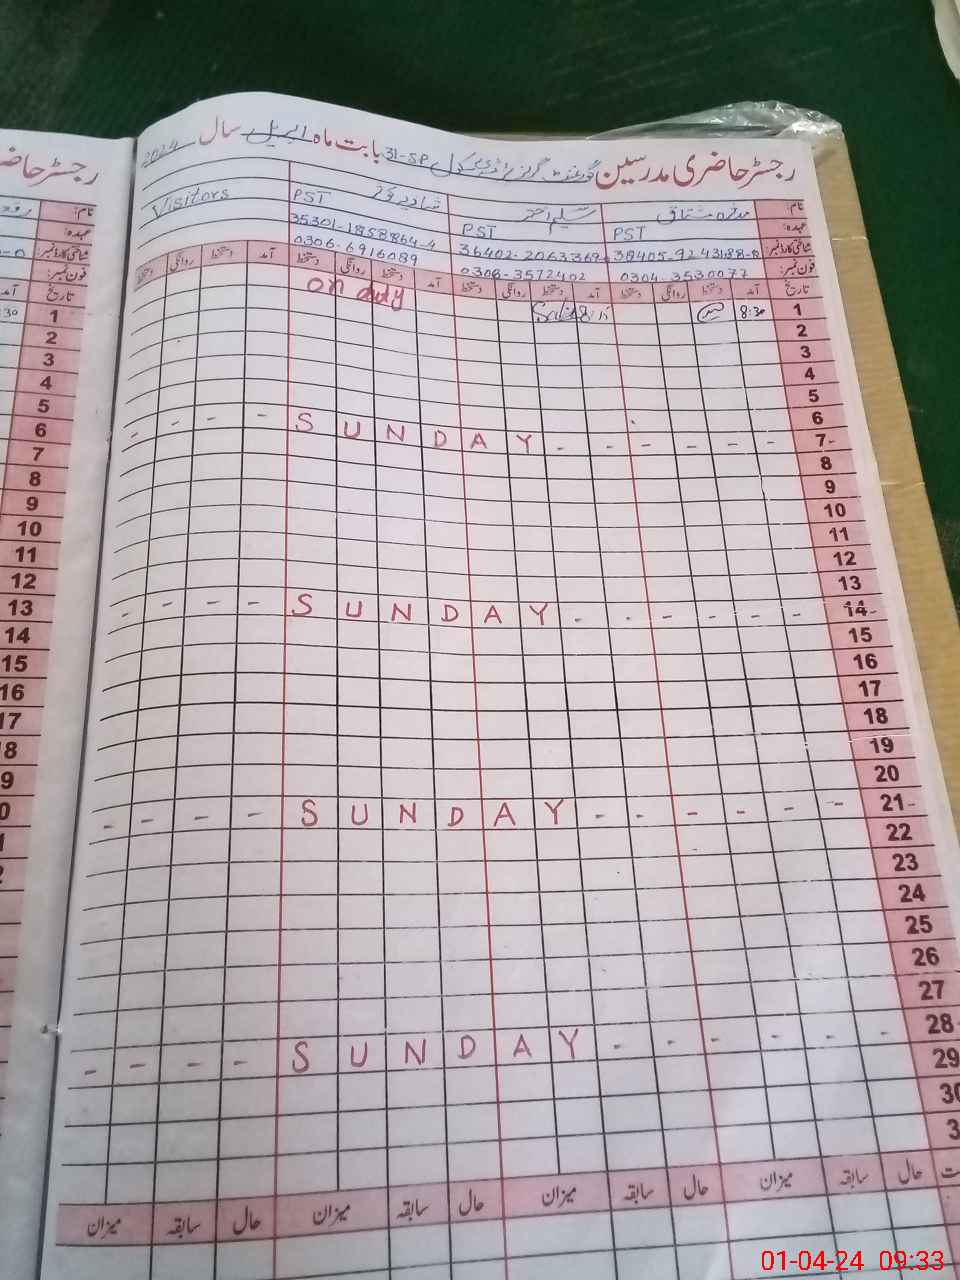 رجسٹر حاضری مدرسین گورنمنٹ گرلز 31-SP بابت ماہ اپریل سال 2024
نام:
Visitors
عہدہ: PST PST PST
شناختی کارڈ نمبر: 36402-2063369 35301-1858864-4
فون نمبر: 0304-3530077 0308-3572402 0306-6916089
تاریخ آمد دستخط روانگی دستخط آمد دستخط روانگی دستخط آمد دستخط روانگی دستخط آمد دستخط روانگی دستخط
1 8:30 on duty
2
3
4
5
6
7- SUNDAY
8
9
10
11
12
13
14- SUNDAY
15
16
17
18
19
20
21- SUNDAY
22
23
24
25
26
27
28- SUNDAY
29
30
حال سابقہ میزان حال سابقہ میزان حال سابقہ میزان حال سابقہ میزان
رجسٹر حاضری
تاریخ
1
2
3
4
5
6
7
8
9
10
11
12
13
14
15
16
17
01-04-24 09:33